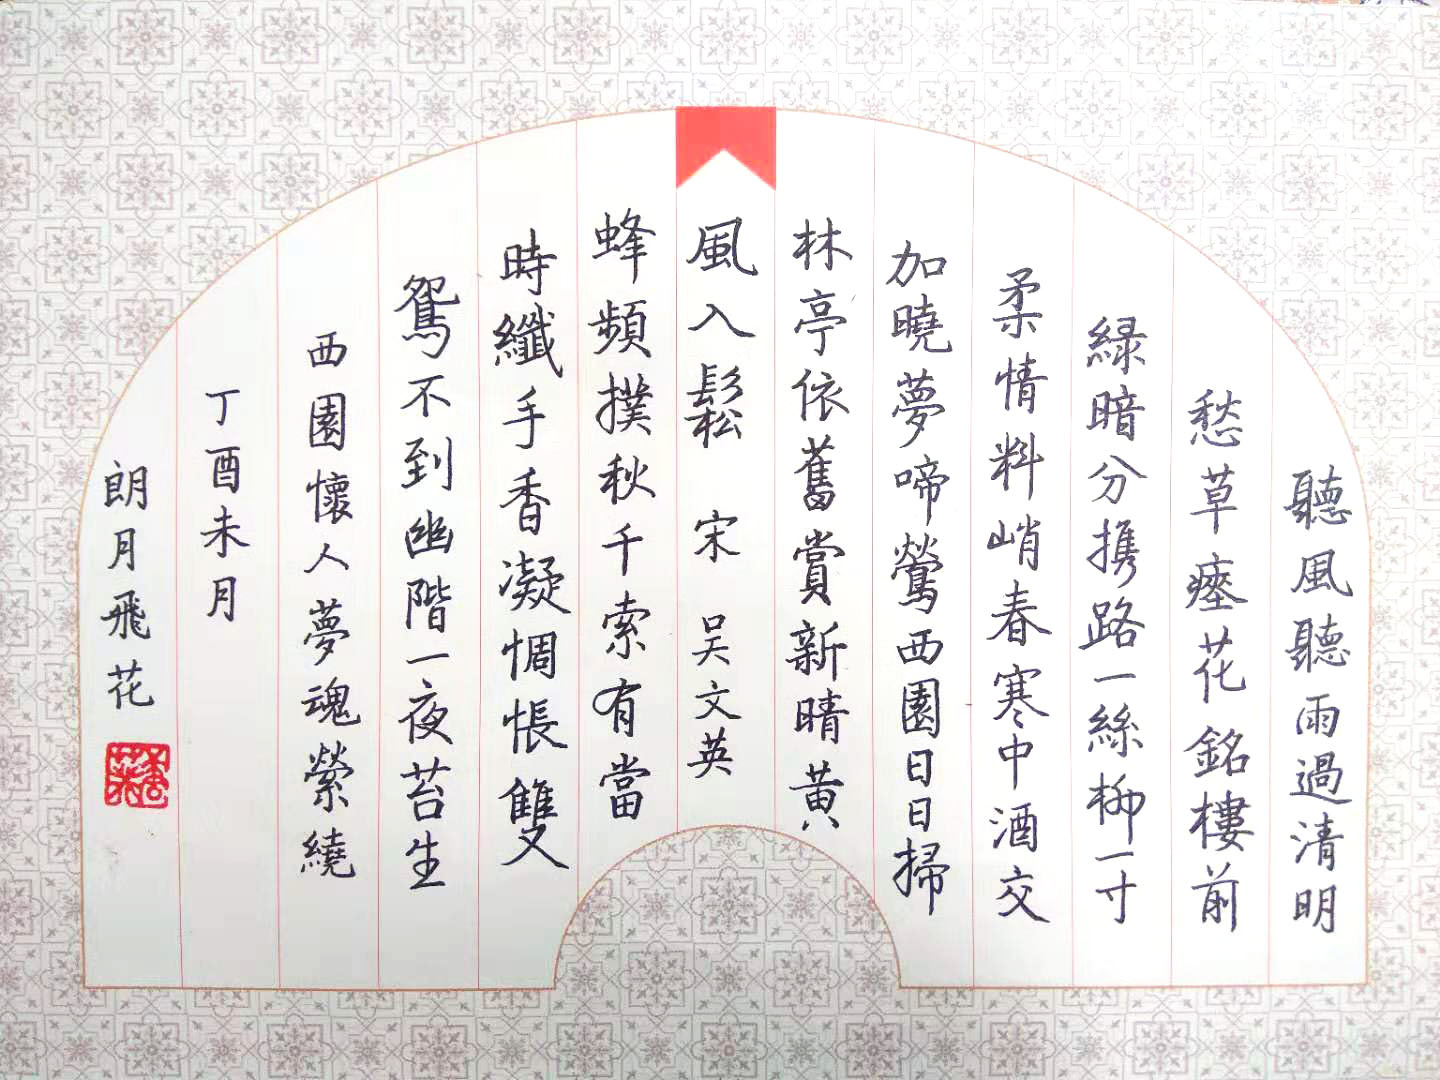 聽風聽雨過清明
愁草瘞花銘樓前
緑暗分携路一絲柳一寸
柔情料峭春寒中酒交
加曉夢啼鶯西園日日掃
林亭依舊賞新晴黄
風入鬆 宋 吴文英
蜂頻撲秋千索有當
時纖手香凝惆悵雙
鴛不到幽階一夜苔生
西園懷人夢魂縈繞
丁酉未月
朗月飛花